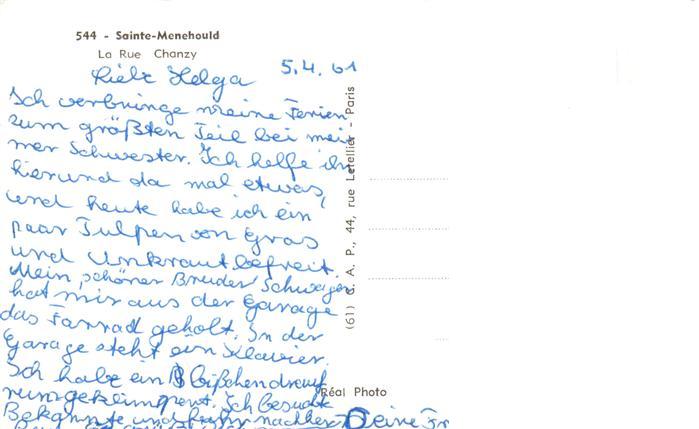 544 - Sainte-Menehould
La Rue Chanzy
Liebe Helga 5.4.61
Ich verbringe meine Ferien
zum größten Teil bei mei
ner Schwester. Ich helfe ihr
hier und da mal etwas,
und heute habe ich ein
paar Tulpen von Gras
und Unkraut befreit.
Mein schöner Bruder Schwager
hat mir aus der Garage
das Farrad geholt. In der
Garage steht ein Klavier.
Ich habe ein bißchen drauf
rumgeklimpert. Ich besuchte
Bekannte und fuhr nachher
Deine
(61) C. A. P., 44, rue Letellier - Paris
Réal Photo